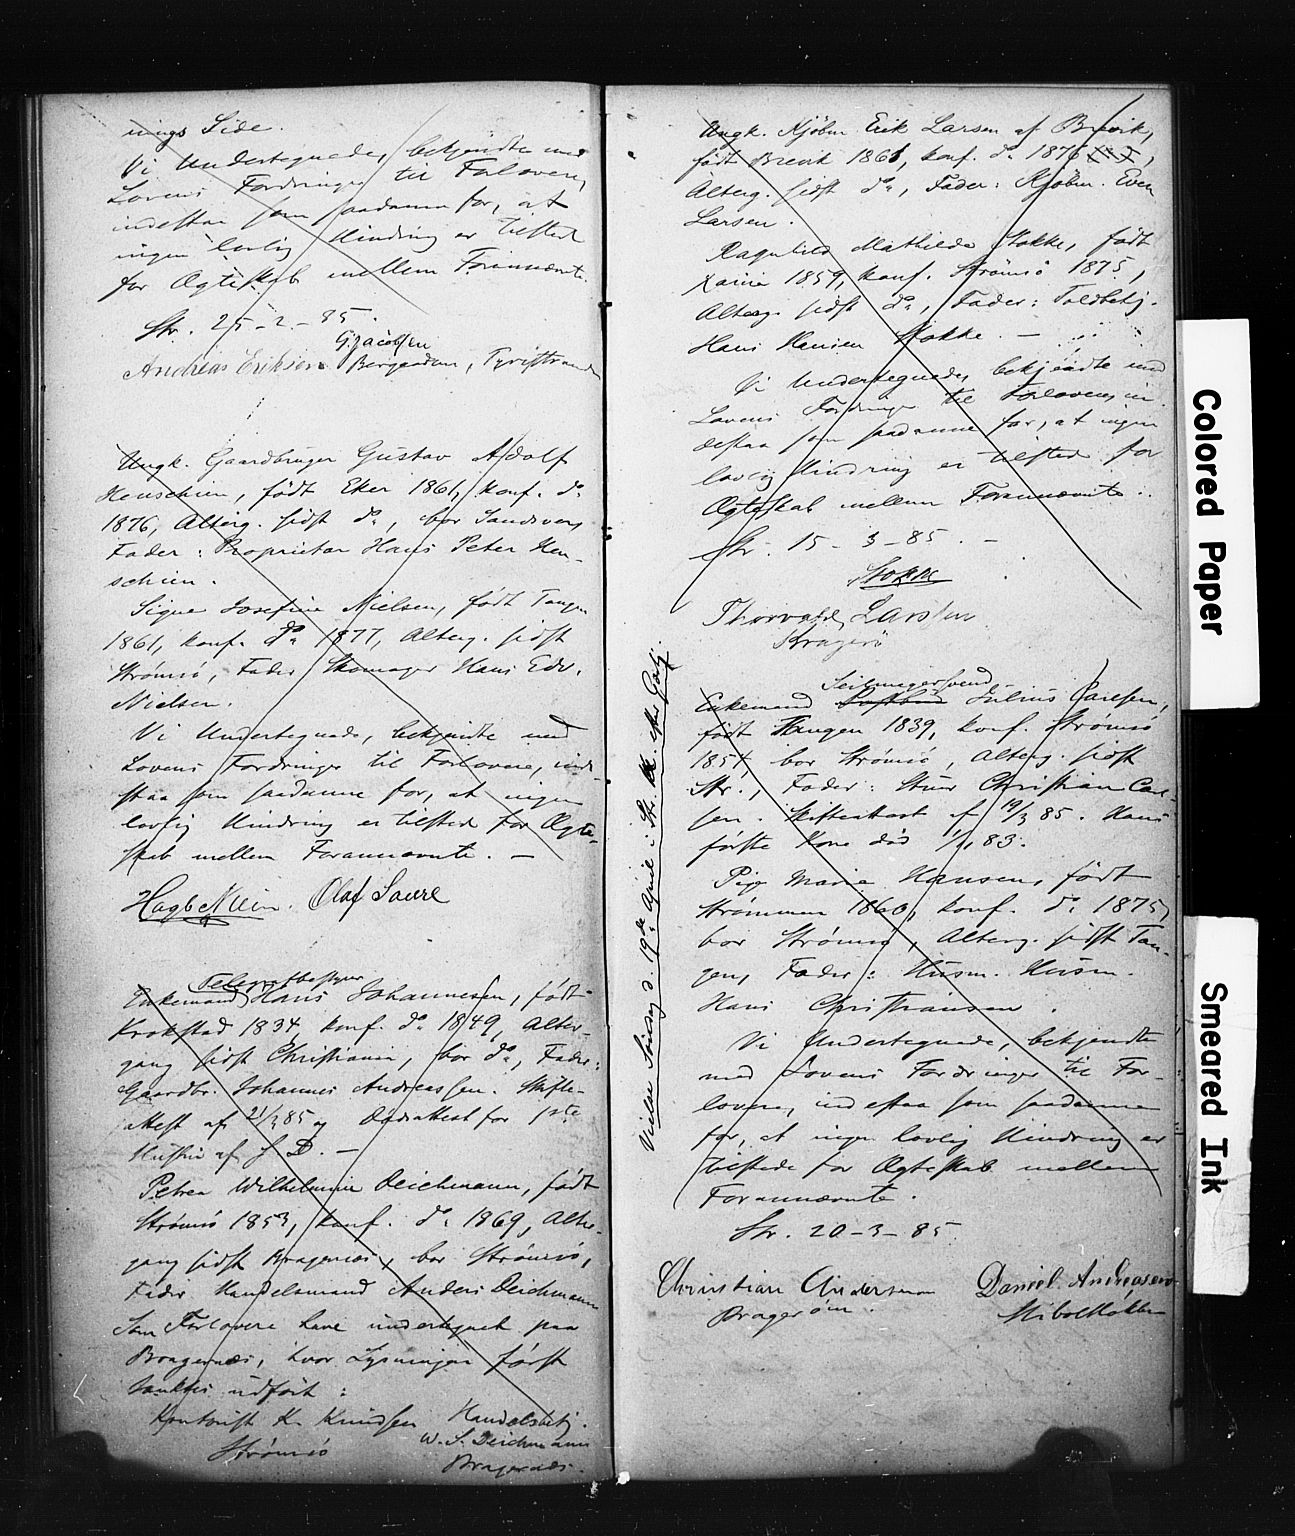 nings Side.
Vi Undertegnede, bekjendte med
Lovens Fordringer til Forlovere,
indestaa som saadanne for, at
ingen lovlig Hindring er tilstede
for Ægteskab mellem Forannævnte.
Str. 25-2-85.
G. Jacobsen
Andreas Eriksen Tyristrand
Ungk. Gaardbruger Gustav Adolf
Henschien, født Eker 1861, konf. do
1876, Alterg. sidst do, bor
Fader: Proprietær Hans Peter Hen-
schien.
Signe Josefine Nielsen, født Tangen
1861, konf. do 1877, Alterg. sidst
Strømsø, Fader Skomager Hans Edv.
Nielsen.
Vi Undertegnede, bekjendte med
Lovens Fordringer til Forlovere, inde-
staa som saadanne for, at ingen
lovlig Hindring er tilstede for Ægte-
skab mellem Forannævnte. —
Olaf Saure
Telegrafbestyrer
Enkemand Hans Johannesen, født
Krokstad 1834, konf. do 1849, Alter-
gang sidst Christiania, bor do, Fader:
Gaardbr. Johannes Andreassen. Skifte-
attest af 21/3 85 og Dødsattest for 1ste
Hustru af s. D. —
Petrea Wilhelmine Deichmann, født
Strømsø 1853, konf. do 1869, Alter-
gang sidst Bragernæs, bor Strømsø,
Fader Handelsmand Anders Deichmann
Som Forlovere have undertegnet paa
Bragernæs, hvor Lysningen først
udført:
Kontorist K. Knudsen Handelsbetj.
Strømsø W. S. Deichmann
Bragernæs.
Ungk. Kjøbm. Erik Larsen af Brevik,
født Brevik 1861, konf. do 1876,
Alterg. sidst do, Fader: Kjøbm. Even
Larsen.
Ragnhild Mathilde Stokke, født
1859, konf. Strømsø 1875,
Alterg. sidst do, Fader: Toldbetj.
Hans Hansen Stokke. —
Vi Undertegnede, bekjendte med
Lovens Fordringer til Forlovere, in-
destaa som saadanne for, at ingen
lovlig Hindring er tilstede for
Ægteskab mellem Forannævnte.
Str. 15-3-85. —
Stokke
Thorvald Larsen
Kragerø
Vielse Søndag d. 19de April i Str. K. efter Gstj.
Seilmagersvend
Enkemand Julius Carlsen,
født Tangen 1839, konf. Strømsø
1854, bor Strømsø, Alterg. sidst
Str., Fader: Christian Carl-
sen. Skifteattest af 19/3 85. Hans
første Kone død 83.
Marie Hansen, født
Strømmen 1860, konf. do 1875,
bor Strømsø, Alterg. sidst Tan-
gen, Fader: Husm. Husm.
Hans Christiansen.
Vi Undertegnede, bekjendte
med Lovens Fordringer til For-
lovere, indestaa som saadanne
for, at ingen lovlig Hindring er
tilstede for Ægteskab mellem
Forannævnte.
Str. 20-3-85
Christian Andersen Daniel Andreasen
Colored Paper
Smeared Ink